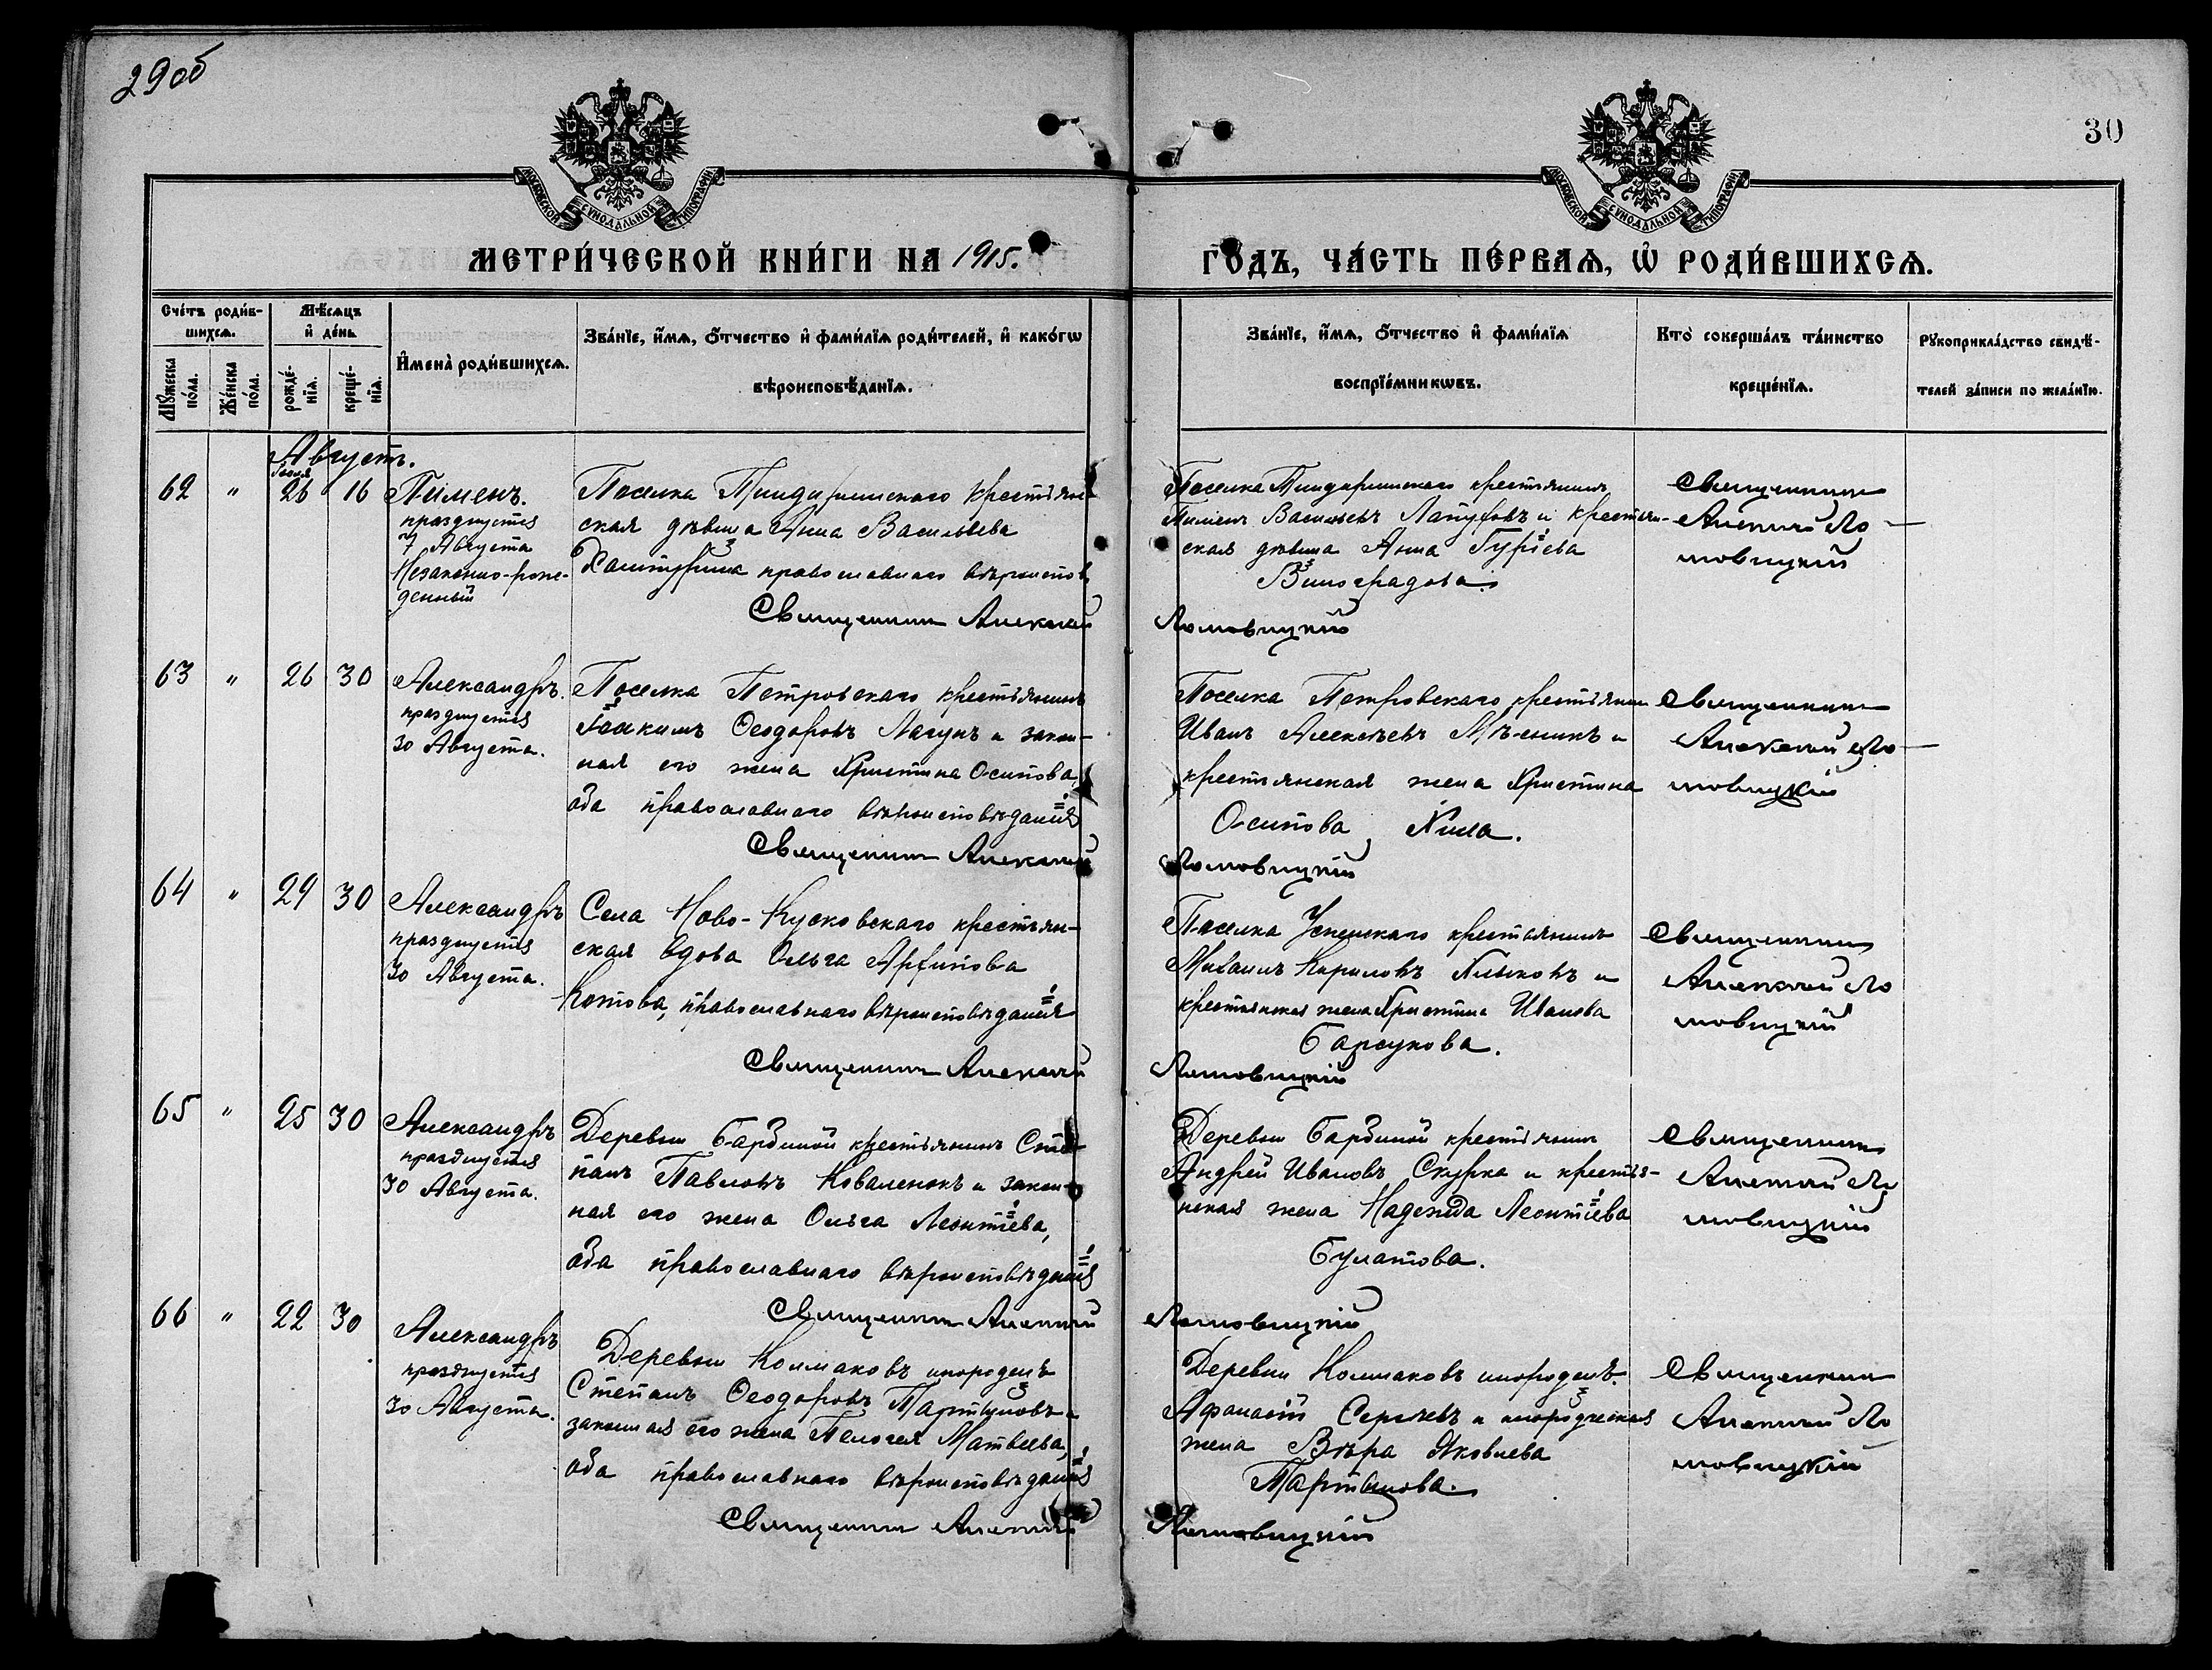 29об
30
МОСКОВСКОЙ СѴНОДАЛЬНОЙ ТИПОГРАФІИ
МОСКОВСКОЙ СѴНОДАЛЬНОЙ ТИПОГРАФІИ
МЕТРИ́ЧЕСКОЙ КНИ́ГИ НА 1915.
ГО́ДЪ, ЧА́СТЬ ПЕ́РВАѦ, Ѡ҆ РОДИ́ВШИХСѦ.
Сче́тъ роди́в-
шихсѧ.
Мѣ́сѧцъ
и҆ де́нь
Мꙋ́жеска по́ла.
Же́нска по́ла.
рожде́-
нїѧ.
креще́-
нїѧ.
И҆мена̀ роди́вшихсѧ.
Зва́нїе, и҆́мѧ, ѻ҆́тчество и҆ фами́лїѧ роди́телей, и҆ како́гѡ
вѣроисповѣ́данїѧ.
Зва́нїе, и҆́мѧ, ѻ҆́тчество и҆ фами́лїѧ
воспрїе́мникѡвъ.
Кто̀ соверша́лъ та́инство
креще́нїѧ.
Рꙋкоприкла́дство свидѣ́-
телей за́писи по жела́нїю.
Августъ.
Іюля
62 " 26 16 Пименъ.
празднуется
7 Августа
Незаконно-рож-
денный
Поселка крестьян-
ская дѣвица Анна Васильева
православнаго вѣроисповѣ
Священникъ Алексій
Поселка крестьянинъ
Пименъ Васильевъ и крестьян-
ская дѣвица Анна Гуріева
Виноградова.
Ломовицкій
Священникъ
Алексій Ло
мовицкій
63 " 26 30 Александръ.
празднуется
30 Августа.
Поселка Петровскаго крестьянинъ
Іоакимъ Ѳеодоровъ Лагунъ и закон-
ная его жена Христина Осипова,
оба православнаго вѣроисповѣданія
Священникъ Алексій
Поселка Петровскаго крестьянинъ
Иванъ Алексѣевъ и
крестьянская жена Христина
Осипова
Ломовицкій
Священникъ
Алексій Ло
мовицкій
64 " 29 30 Александръ
празднуется
30 Августа.
Села Ново-Кусковскаго крестьян-
ская вдова Ольга
Котова, православнаго вѣроисповѣданія
Священникъ Алексій
Поселка Успенскаго крестьянинъ
Михаилъ Кириловъ и
крестьянская жена Христина Иванова
Барсукова.
Ломовицкій
Священникъ
Алексій Ло
мовицкій
65 " 25 30 Александръ
празднуется
30 Августа.
Деревни крестьянинъ Сте
панъ Павловъ Коваленокъ и закон-
ная его жена Ольга Леонтіева,
оба православнаго вѣроисповѣданія
Священникъ Алексій
Деревни крестьянинъ
Андрей Ивановъ Скурка и крестья-
нская жена Надежда Леонтіева
Булатова.
Ломовицкій
Священникъ
Алексій Ло
мовицкій
66 " 22 30 Александръ
празднуется
30 Августа.
Деревни Колмаковъ инородецъ
Степанъ Ѳеодоровъ
законная его жена Пелагея Матвеева,
оба православнаго вѣроисповѣданія
Священникъ Алексій
Деревни Колмаковъ инородецъ
Афанасій Сергѣевъ и инородческая
жена Вѣра Яковлева
Ломовицкій
Священникъ
Алексій Ло
мовицкій